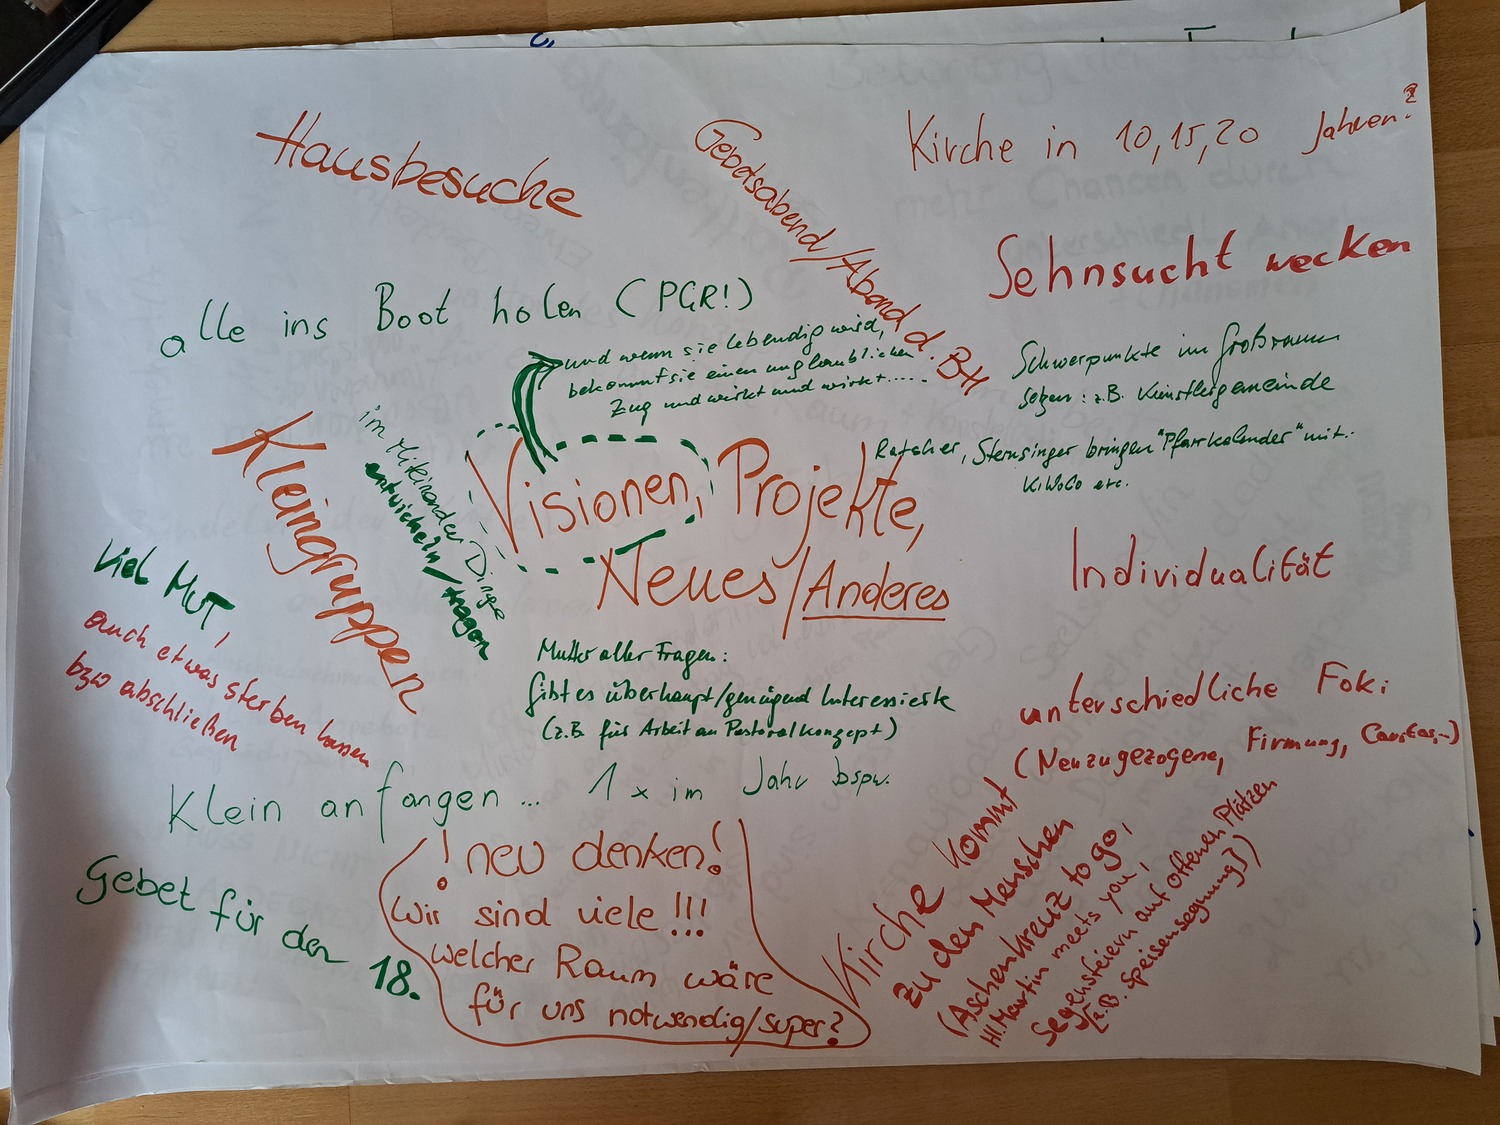 Hausbesuche
Gebetsabend/Abend d. BH
Kirche in 10, 15, 20 Jahren?
Sehnsucht wecken
alle ins Boot holen (PGR!)
und wenn sie lebendig wird,
bekommt sie einen unglaublichen
Zug und wirkt und wirkt.....
Schwerpunkte im Großraum
setzen: z.B. Künstlergemeinde
Ratscher, Sternsinger bringen "Pfarrkalender" mit..
KiWoGo etc.
Kleingruppen
im Miteinander Dinge
entwickeln/tragen
Visionen, Projekte,
Neues/Anderes
Individualität
viel MUT,
auch etwas sterben lassen
bzw abschließen
Mutter aller Fragen:
Gibt es überhaupt/genügend Interessierte
(z.B. für Arbeit an Pastoralkonzept)
unterschiedliche Foki
(Neuzugezogene, Firmung, Caritas,..)
Klein anfangen... 1 x im Jahr bspw.
Gebet für den 18.
! neu denken!
Wir sind viele !!!
welcher Raum wäre
für uns notwendig/super?
Kirche kommt
zu den Menschen
(Aschenkreuz to go,
Hl. Martin meets you,
Segensfeiern auf offenen Plätzen
[z.B. Speisensegnung])